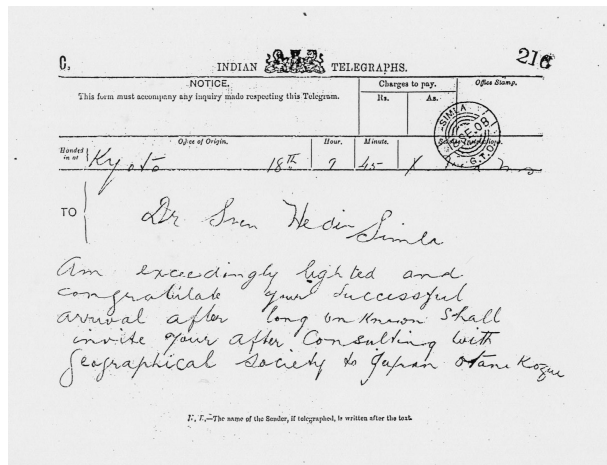 C.
216
INDIAN TELEGRAPHS.
NOTICE.
This form must accompany any inquiry made respecting this Telegram.
Charges to pay.
Rs. As.
Office Stamp.
SIMLA
SE.08
G.T.O
Handed in at
Office of Origin.
Hour. Minute.
Kyoto 18TH 9 45
TO
Dr Sven Hedin
Simla
Am exceedingly lighted and
congratulate your successful
arrival after long unknown shall
invite your after Consulting with
geographical society to Japan Otani Kozui
N. B.—The name of the Sender, if telegraphed, is written after the text.